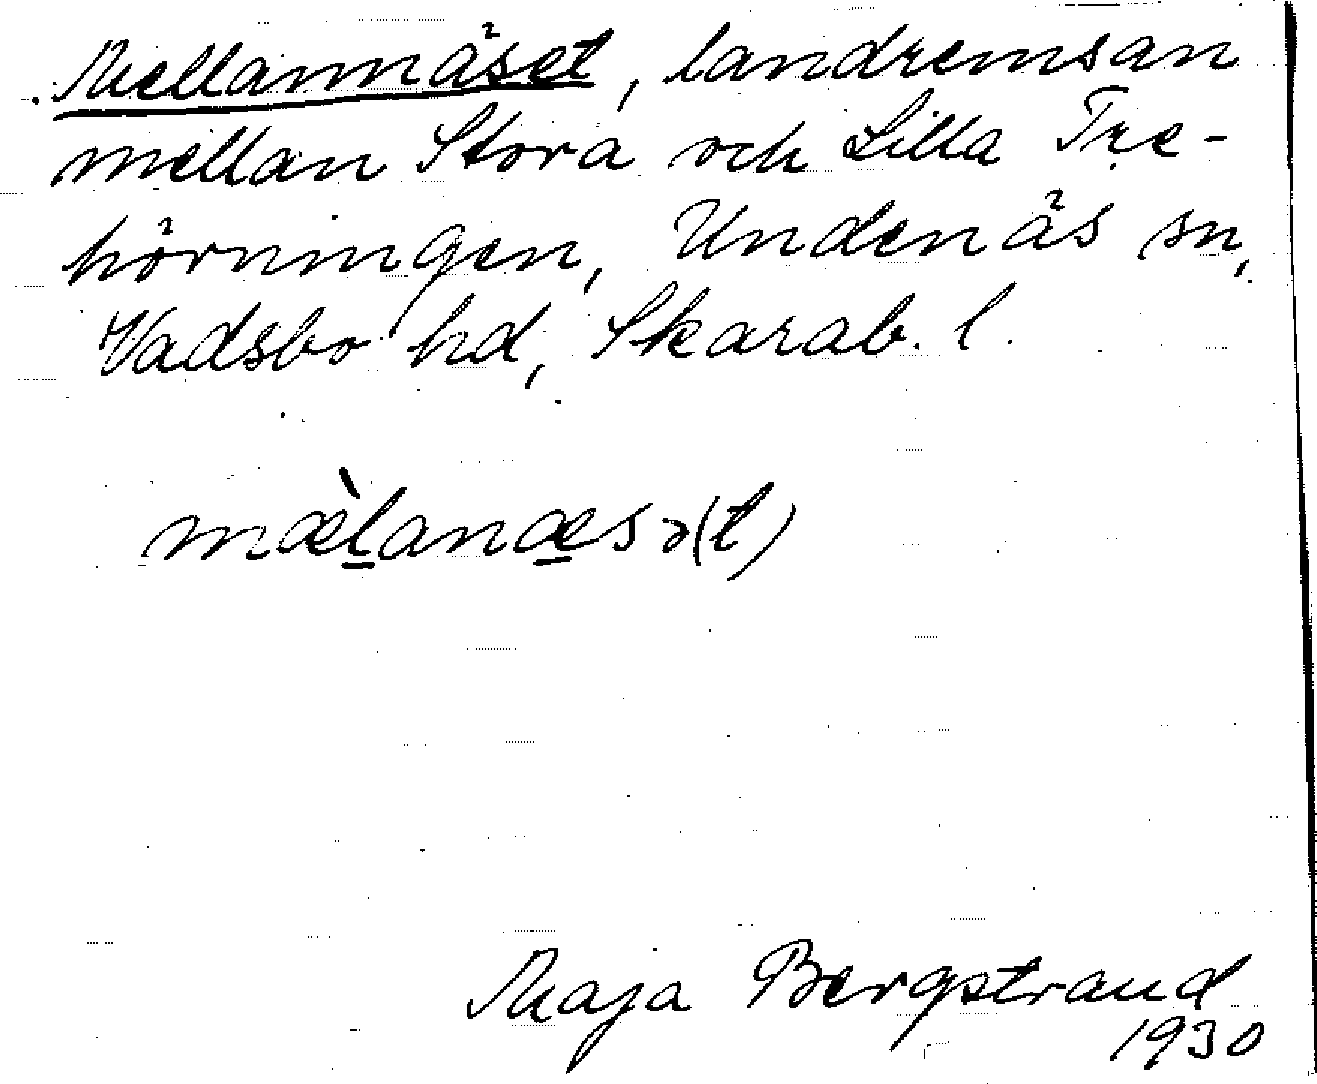 Mellannäset, landremsan
mellan Stora och Lilla Tre-
hörningen, Undenäs sn,
Vadsbo hd, Skarab. l.
mæ̀lanæsə(t)
Maja Bergstrand
1930